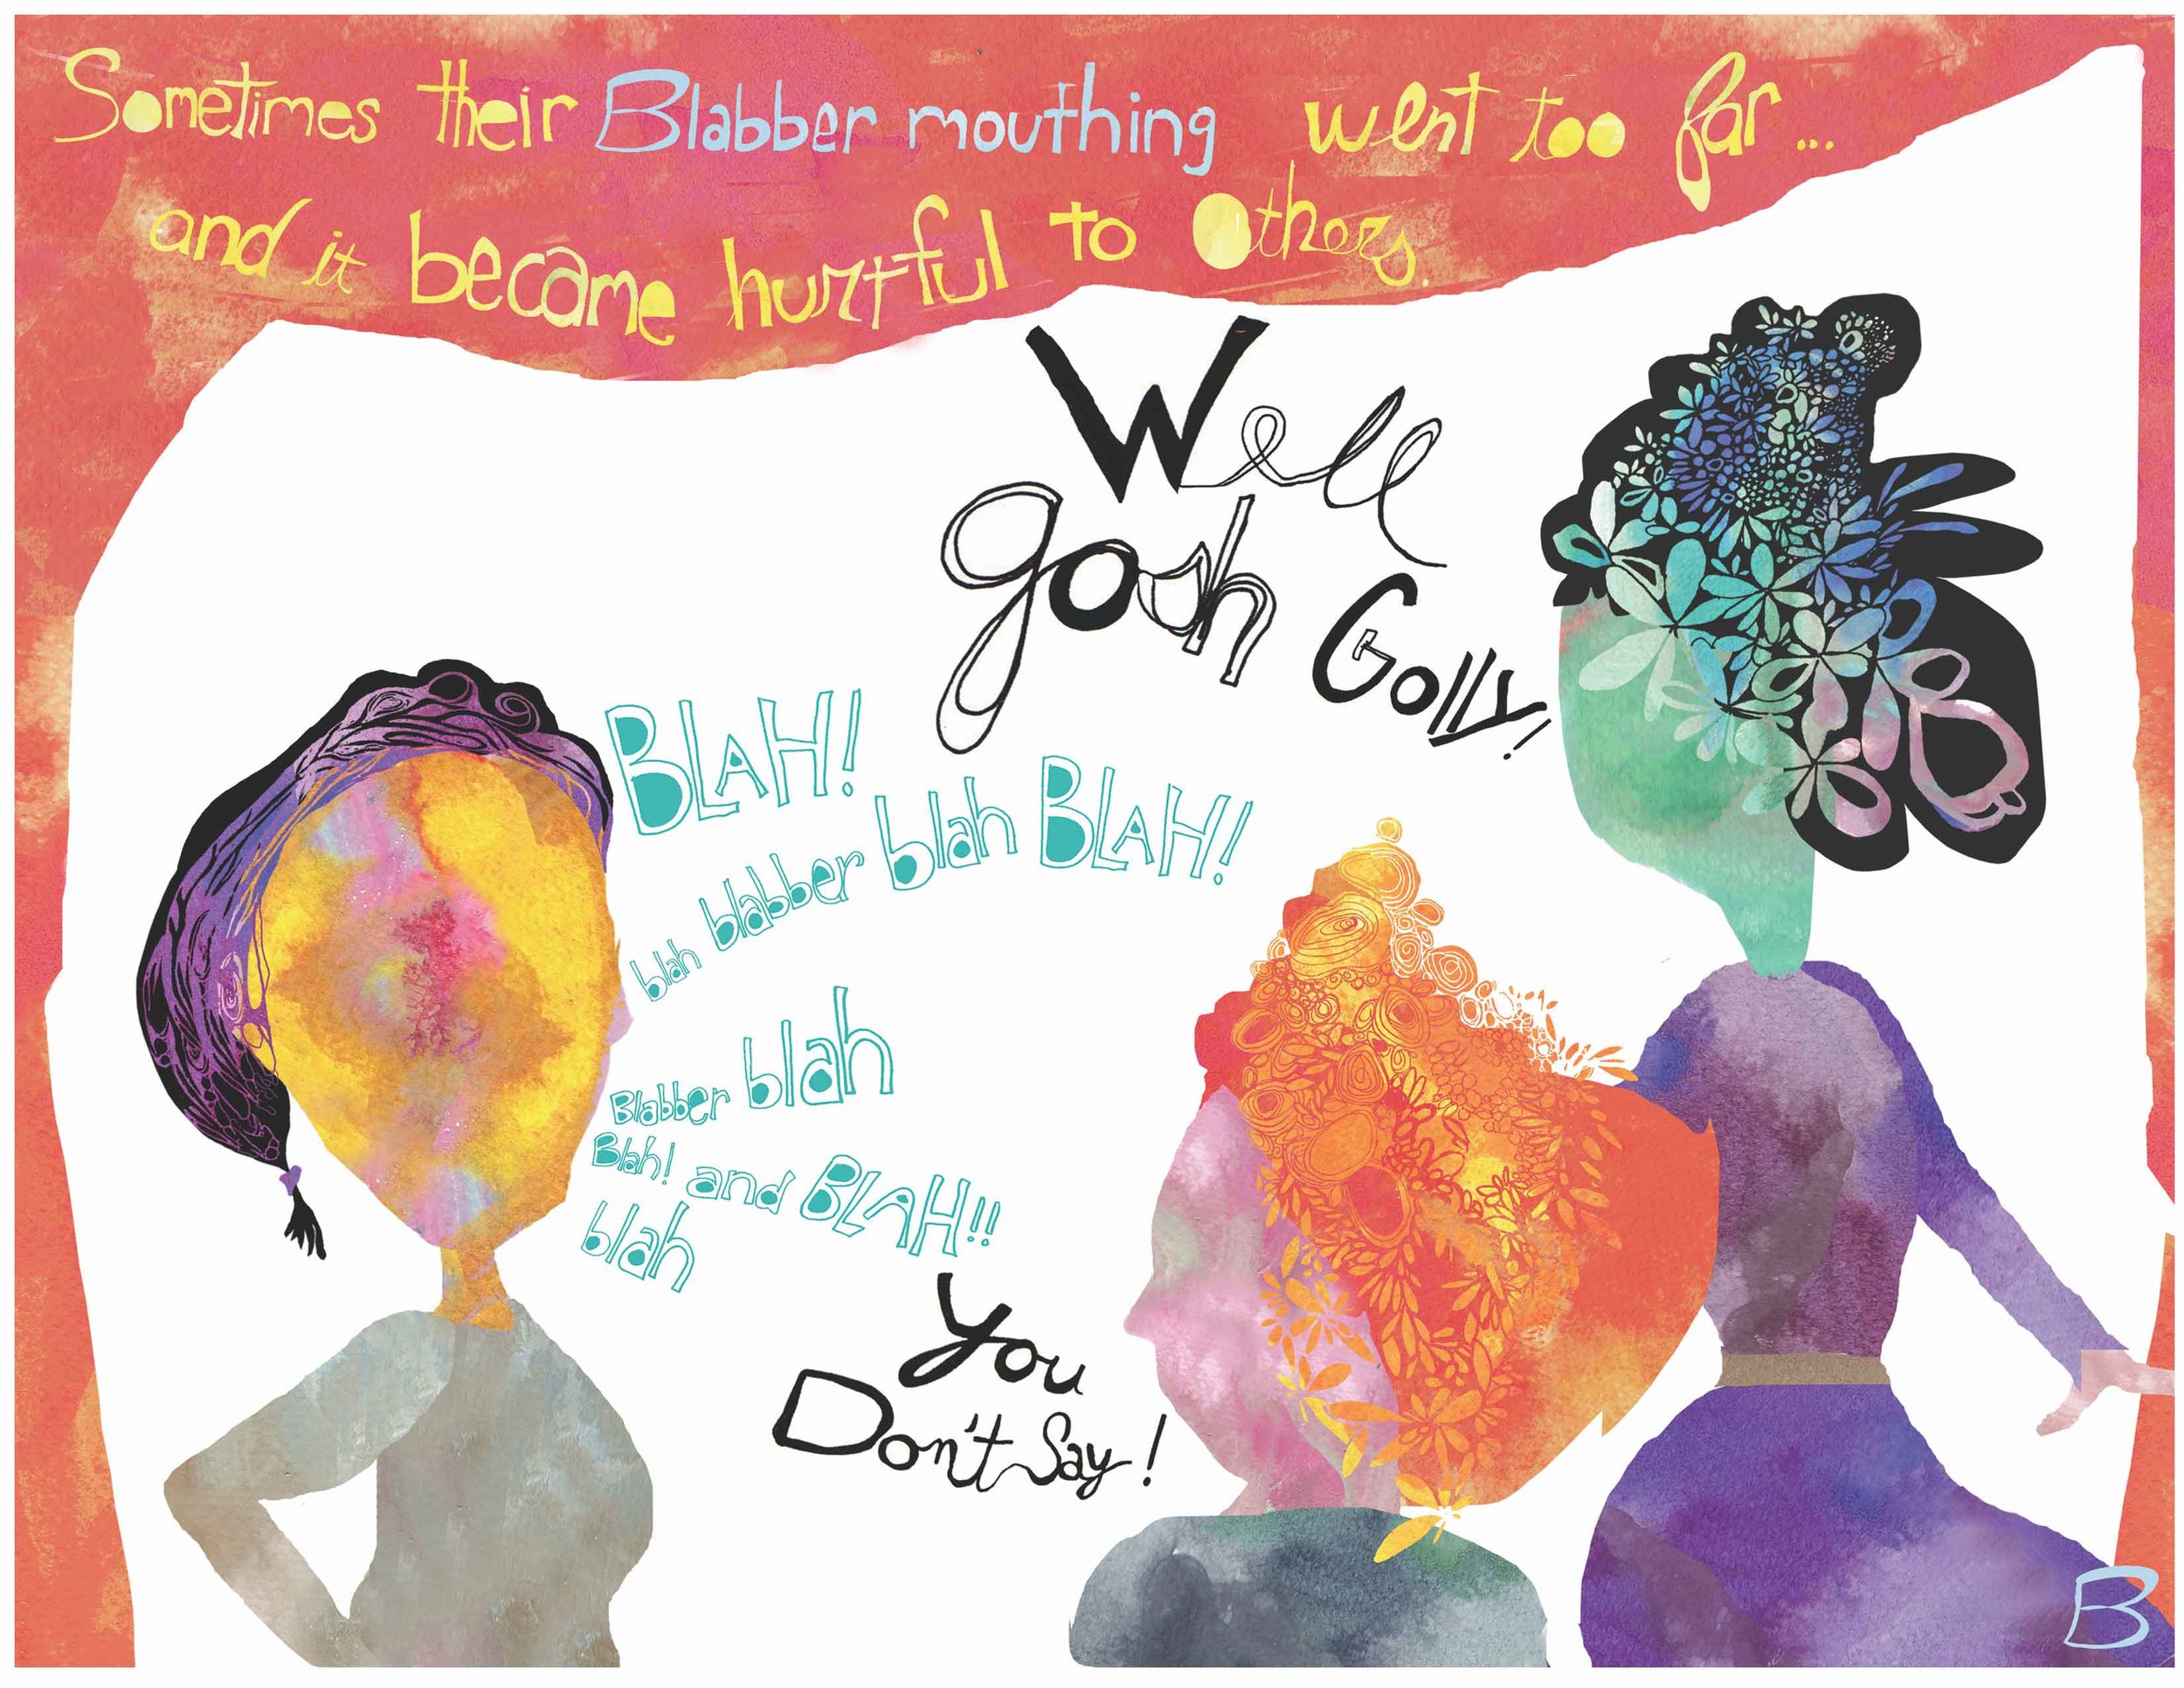 Sometimes their Blabber mouthing went too far...
and it became hurtful to Others.
Well
gosh Golly!
BLAH!
blah blabber blah BLAH!
Blabber blah
Blah! and BLAH!!
blah
You
Don't Say!
B